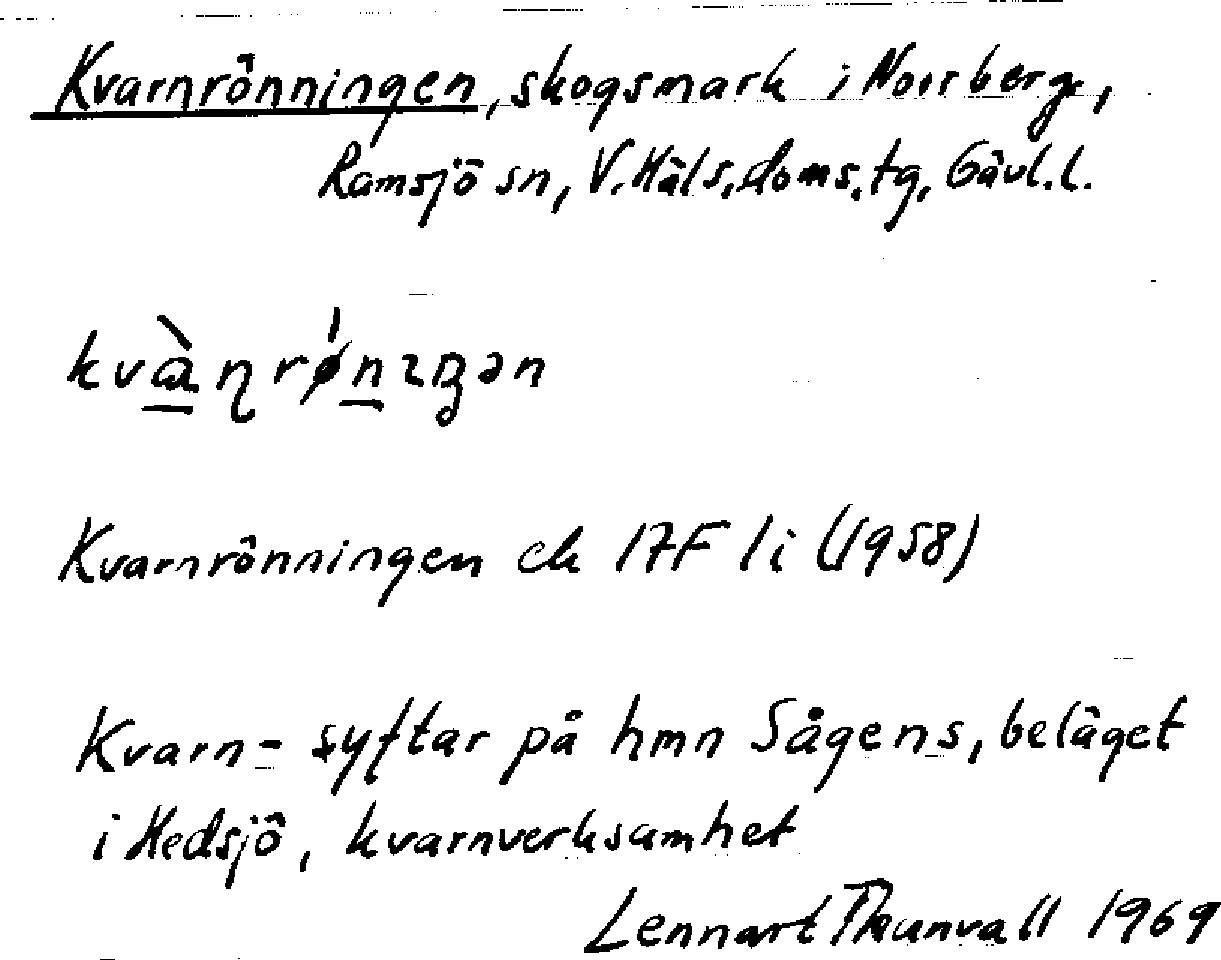 Kvarnrönningen, skogsmark i Norrberg,
Ramsjö sn, V. Häls. doms. tg, Gävl. l.
Kvarnrönningen ek 17F 1i (1958)
Kvarn- syftar på hmn Sågens, beläget
i Hedsjö, kvarnverksamhet
Lennart Thunvall 1969